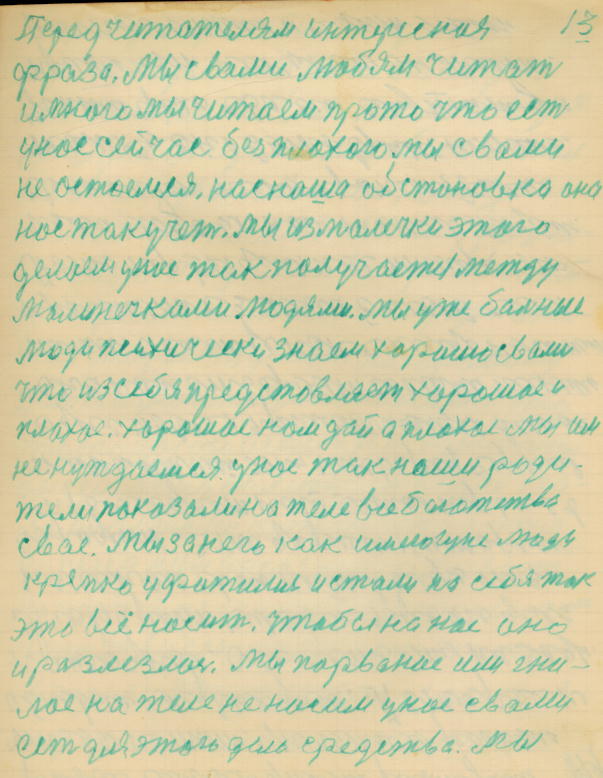 Перед читателям интересная 13
фраза. Мы свами любям читат
и много мы читаем прото что ест
унос сейчас. без плохого мы свами
не остоемся. нас наша обстоновка она
нос так учет. Мы из малечки этого
делоем унос так получается между
молинечками людями. Мы уже болные
люди психически знаем хорошо свами
что из себя предстовляет хорошое и
плохое. хорошое ном дай а плохое мы им
не нуждаемся. унос так ноши роди-
тели показали на теле все богатства
свое. Мы за него как имеюгуие люди
крепко ухватилис и стали на себя так
это всё носит. чтобы на нас оно
и разлезлос. Мы порваное или гни-
лое на теле не носим унос свами
ест для этого дело средства. Мы